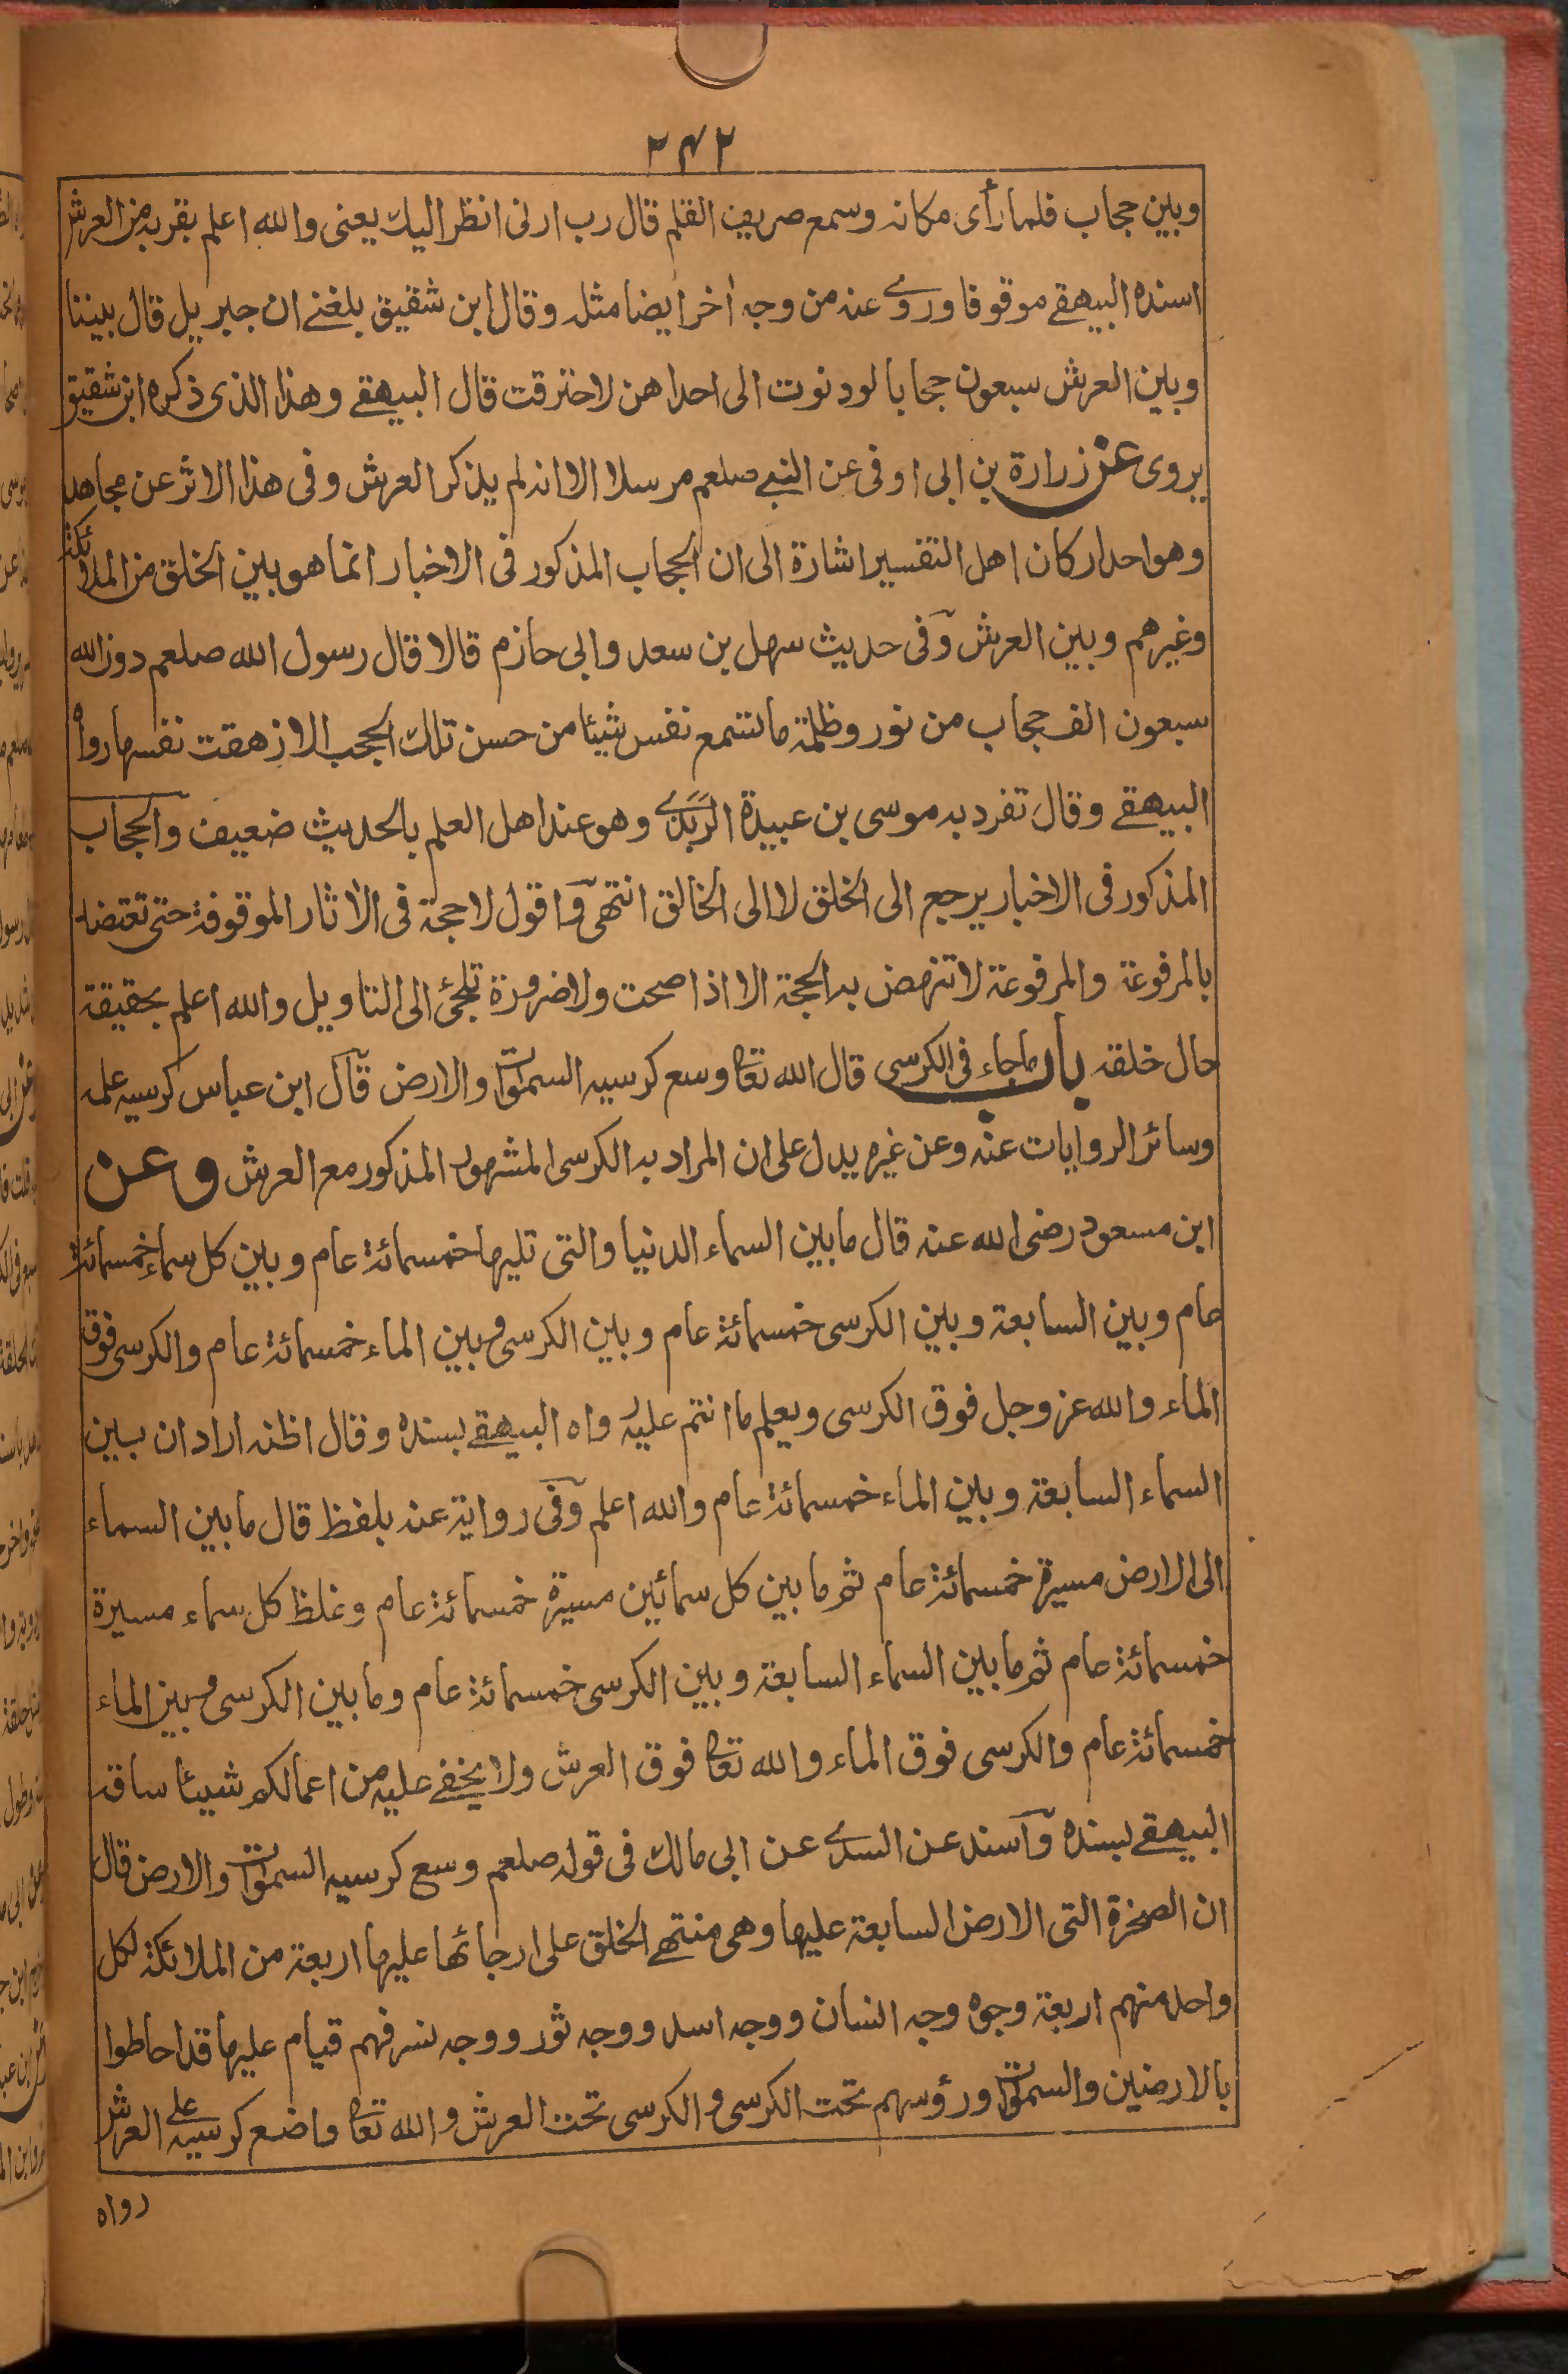 ۲۴۲
وبين حجاب فلما رأى مكانه وسمع صريف القلم قال رب ارنى انظر اليك يعنى والله اعلم بقربه من العرش
اسنده البيهقے موقوفا وروے عنه من وجه أخر ايضا مثله وقال ابن شقيق بلغنے ان جبريل قال بيننا
وبين العرش سبعون حجابا لو دنوت الى احداهن لاحترقت قال البيهقے وهذا الذى ذكره ابن شقيق
يروى عن زرارة بن ابى اوفى عن النبے صلعم مرسلا الا انه لم يذكر العرش وفى هذا الاثر عن مجاهد
وهو احد اركان اهل التفسير اشارة الى ان الحجاب المذكور فى الاخبار انما هو بين الخلق من الملائكة
وغيرهم وبين العرش وفى حديث سهل بن سعد وابى حازم قالا قال رسول الله صلعم دون الله
سبعون الف حجاب من نور وظلمة ما تسمع نفس شيئا من حسن تلك الحجب الا زهقت نفسها رواه
البيهقے وقال تفرد به موسى بن عبيدة الرَّبَذے وهو عند اهل العلم بالحديث ضعيف والحجاب
المذكور فى الاخبار يرجع الى الخلق لا الى الخالق انتهى واقول لا حجة فى الأثار الموقوفة حتى تعتضد
بالمرفوعة والمرفوعة لا تنهض به الحجة الا اذا صحت ولا ضرورة تلجئ الى التاويل والله اعلم بحقيقة
حال خلقه باب ما جاء فى الكرسى قال الله تعالى وسع كرسيه السموات والارض قال ابن عباس كرسيه علمه
وسائر الروايات عنه وعن غيره يدل على ان المراد به الكرسى المشهور المذكور مع العرش وعن
ابن مسعود رضى الله عنه قال ما بين السماء الدنيا والتى تليها خمسمائة عام وبين كل سماء خمسمائة
عام وبين السابعة وبين الكرسى خمسمائة عام وبين الكرسى وبين الماء خمسمائة عام والكرسى فوق
الماء والله عز وجل فوق الكرسى ويعلم ما انتم عليه رواه البيهقے بسنده وقال اظنه اراد ان بين
السماء السابعة وبين الماء خمسمائة عام والله اعلم وفى رواية عنه بلفظ قال ما بين السماء
الى الارض مسيرة خمسمائة عام ثم ما بين كل سمائين مسيرة خمسمائة عام وغلظ كل سماء مسيرة
خمسمائة عام ثم ما بين السماء السابعة وبين الكرسى خمسمائة عام وما بين الكرسى وبين الماء
خمسمائة عام والكرسى فوق الماء والله تعالى فوق العرش ولا يخفے عليه من اعمالكم شيئا ساقه
البيهقے بسنده وأسند عن السدے عن ابى مالك فى قوله صلعم وسع كرسيه السموات والارض قال
ان الصخرة التى الارض السابعة عليها وهى منتهے الخلق على ارجائها عليها اربعة من الملائكة لكل
واحد منهم اربعة وجوه وجه انسان ووجه اسد ووجه ثور ووجه نسر فهم قيام عليها قد احاطوا
بالارضين والسموات ورؤسهم تحت الكرسى والكرسى تحت العرش والله تعالى واضع كرسيه على العرش
رواه